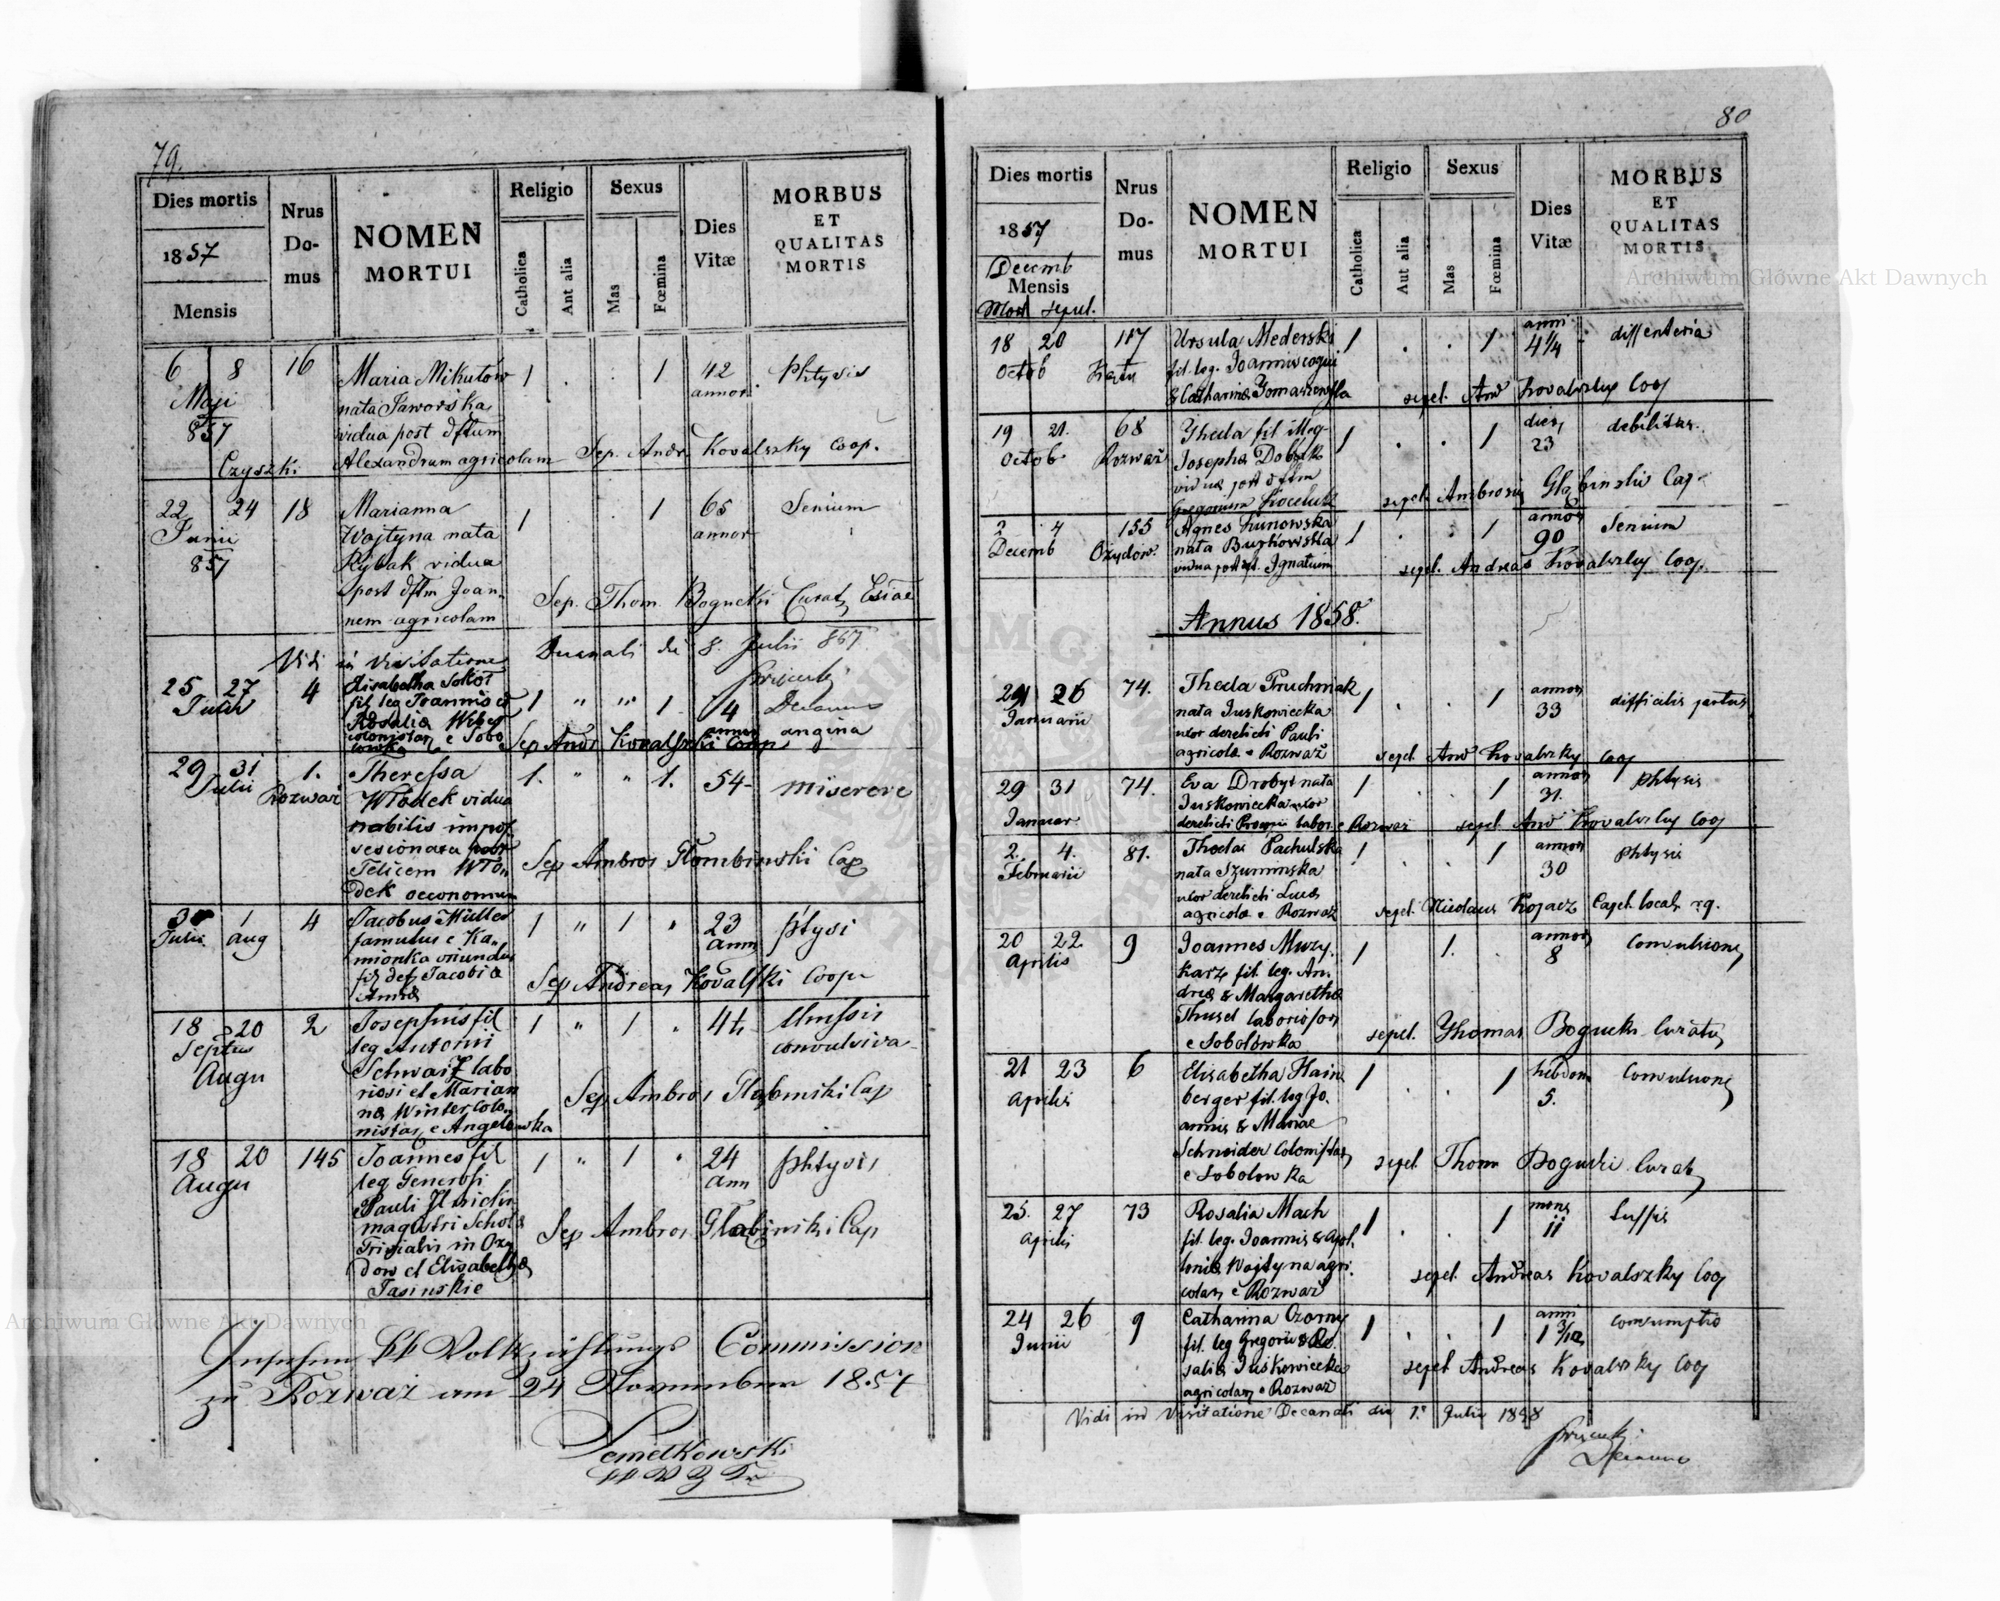 79.
Dies mortis
1857
Mensis
Nrus
Do-
mus
NOMEN
MORTUI
Religio
Catholica
Aut alia
Sexus
Mas
Fœmina
Dies
Vitæ
MORBUS
ET
QUALITAS
MORTIS
6 8 16 Maria Mikutów 1 . . 1 42 Phtysis
Maji nata Jaworska annor
857 vidua post dftum
Czyszki Alexandrum agricolam Sep. Andr. Kovalszky Coop.
22 24 18 Marianna 1 1 65 Senium
Junii Wojtyna nata annor
857 Rybak vidua
post dftm Joan
nem agricolam Sep. Thom. Bogucki Curat
Vidi in visitatione Decanali die 8. Julii 857
Decanus
25 27 4 Elisabetha Sokol 1 " " 1 4 angina
Julii fil leg Joannis et annor
Rosaliæ Weber
colonistar e Sobo
lowka Sep Andr Kovalszki Coop
29 31 1. Theressa 1. " " 1. 54 miserere
Julii Rozważ Włodek vidua
nobilis impos
sesionata post
Felicem Wło
dek oeconomum Sep Ambros Głombinski Cap
30 1 4 Jacobus Müller 1 " 1 " 23 phtysi
Julii Aug famulus e Ka- ann
mionka oriundus
fil def Jacobi &
Annæ Sep Andreas Kovalski Coop
18 20 2 Josephus fil 1 " 1 . 4 tussis
Augu leg Antonii convulsiva
Schwarz labo
riosi et Marian
næ Winter colo-
nistar e Angelowka Sep Ambros Głąbinski Cap
18 20 145 Joannes fil 1 " 1 " 24 phtysis
Augu leg Generosi ann
Pauli
magistri Scholæ
Trivialis in Oży
dow et Elisabethæ
Jasinskie Sep Ambros Głąbinski Cap
Commission
zu Rozważ am 24 November 1857
80
Dies mortis
1857
Decemb
Mensis
Mort sepul.
Nrus
Do-
mus
NOMEN
MORTUI
Religio
Catholica
Aut alia
Sexus
Mas
Fœmina
Dies
Vitæ
MORBUS
ET
QUALITAS
MORTIS
18 20 117 Ursula Mederski 1 . . 1 anni 4 1/4 dissenteria
Octob fil. leg. Joannis coqui
& Catharinæ Tomaszewska sepel. And Kovalszky Coop
19 21. 68 Thecla fil illeg 1 . . 1 dier 23 debilitas
Octob Rozważ Josephæ Dobek
viduæ post dftm
sepel. Ambrosius Głąbinski Cap.
2 4 155 Agnes Kunowska 1 . . 1 annor 90 Senium
Decemb Ożydow nata Buzkowska
vidua post dft. Ignatium sepel. Andreas Kovalszky Coop.
Annus 1858.
24 26 74. Thecla Pruchniak 1 . . 1 annor 33 difficilis partus
Januarii nata Juskowiecka
uxor derelicti Pauli
agricolæ e Rozważ sepel. And Kovalszky Coop
29 31 74. Eva Drobyt nata 1 . 1 annor 31. Phtysis
Januar Juskowiecka uxor
derelicti Procopii labor. e Rozważ sepel. And Kovalszky Coop
2. 4. 81. Thecla Pachulska 1 . . 1 annor 30 Phtysis
Februarii nata Szuminska
uxor derelicti Lucæ
agricolæ e Rozważ sepel. Nicolaus Kopacz Capel. local. r.g.
20 22. 9 Joannes Muzy- 1 1. . annor 8 Convulsiones
Aprilis karz fil. leg. An-
dreæ & Margarethæ
laborioSor
e Sobolówka sepel. Thomas Bogucki Curatus
21 23 6 Elisabetha Hain 1 . . 1 hebdom 5. Convulsiones
Aprilis berger fil. leg Jo-
annis & Mariæ
Schneider Colonistar
e Sobolowka sepel Thom Bogucki Curat
25. 27 73 Rosalia Mach 1 . . 1 mens 11 tussis
Aprilis fil. leg. Joannis & Apol-
loniæ Wojtyna agri-
colar e Rozważ sepel. Andreas Kovalszky Coop
24 26 9 Catharina Ozorny 1 . . 1 anni 1 3/12 Consumptio
Junii fil. leg Gregorii & Ro-
saliæ Juskowiecka
agricolar e Rozważ sepel Andreas Kovalszky Coop
Vidi in visitatione Decanali die 1. Julii 1858
Decanus
Archiwum Główne Akt Dawnych
Archiwum Główne Akt Dawnych